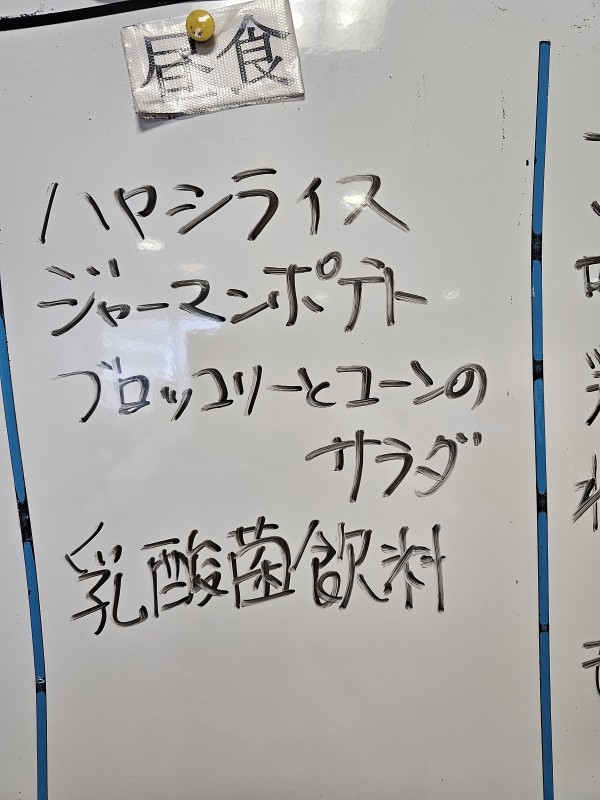 昼食
ハヤシライス
ジャーマンポテト
ブロッコリーとコーンの
サラダ
乳酸菌飲料